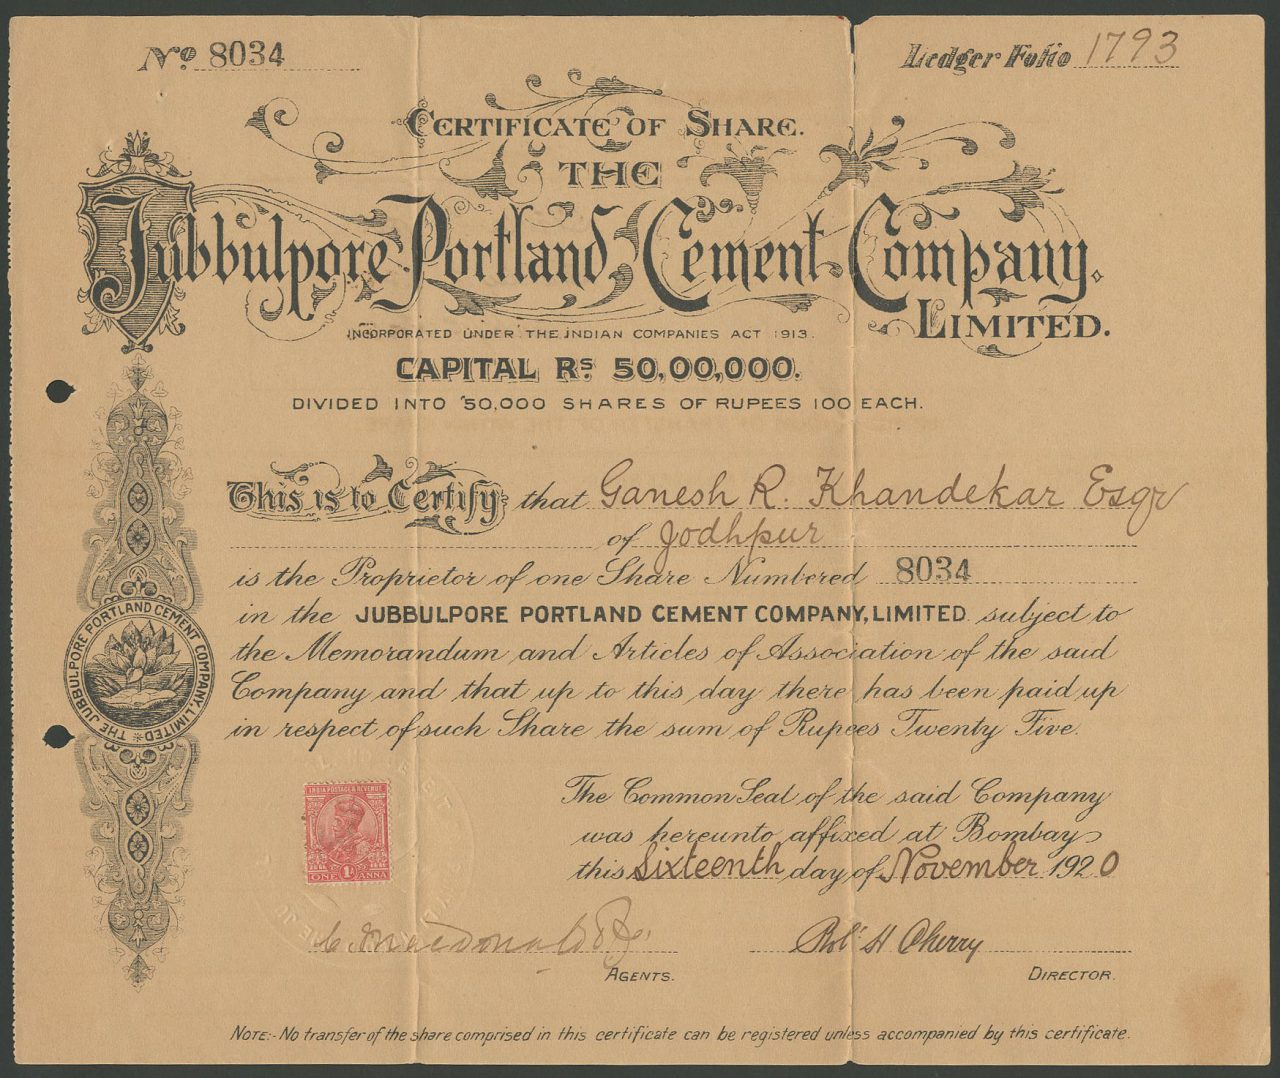 No 8034
Ledger Folio 1793
CERTIFICATE OF SHARE.
THE
Jubbulpore Portland Cement Company,
LIMITED.
INCORPORATED UNDER THE INDIAN COMPANIES ACT 1913.
CAPITAL Rs. 50,00,000.
DIVIDED INTO 50,000 SHARES OF RUPEES 100 EACH.
This is to Certify that Ganesh R. Khandekar Esqr
of Jodhpur
is the Proprietor of one Share Numbered 8034
in the JUBBULPORE PORTLAND CEMENT COMPANY, LIMITED subject to
the Memorandum and Articles of Association of the said
Company and that up to this day there has been paid up
in respect of such Share the sum of Rupees Twenty Five.
THE JUBBULPORE PORTLAND CEMENT COMPANY, LIMITED
INDIA POSTAGE & REVENUE
1A
ONE ANNA
The Common Seal of the said Company
was hereunto affixed at Bombay
this Sixteenth day of November 1920
C. Macdonald &
Robt. H Cherry
AGENTS.
DIRECTOR.
NOTE:- No transfer of the share comprised in this certificate can be registered unless accompanied by this certificate.